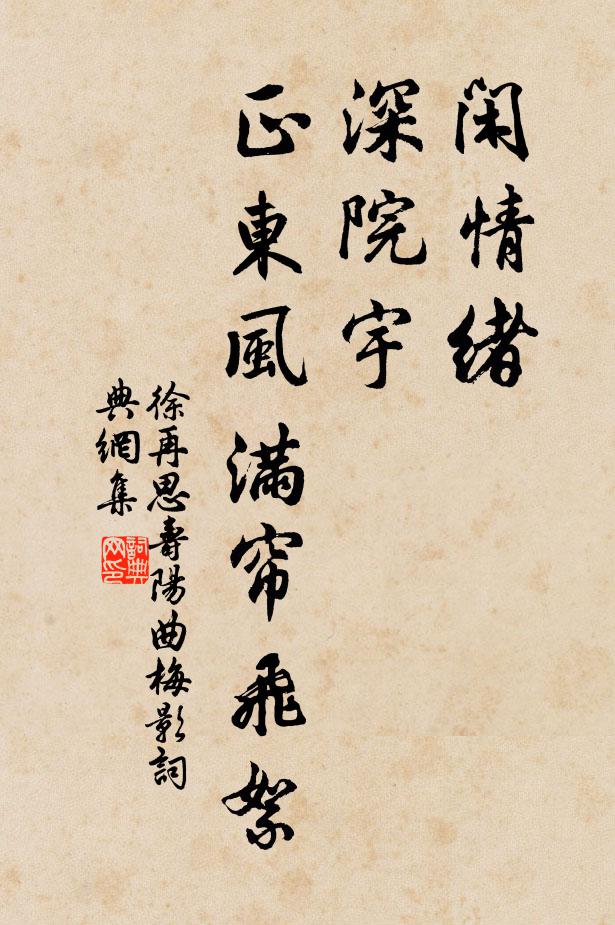 閑情緒
深院宇
正東風滿帘飛絮
徐再思壽陽曲梅影詞
典網集
詞典
网印